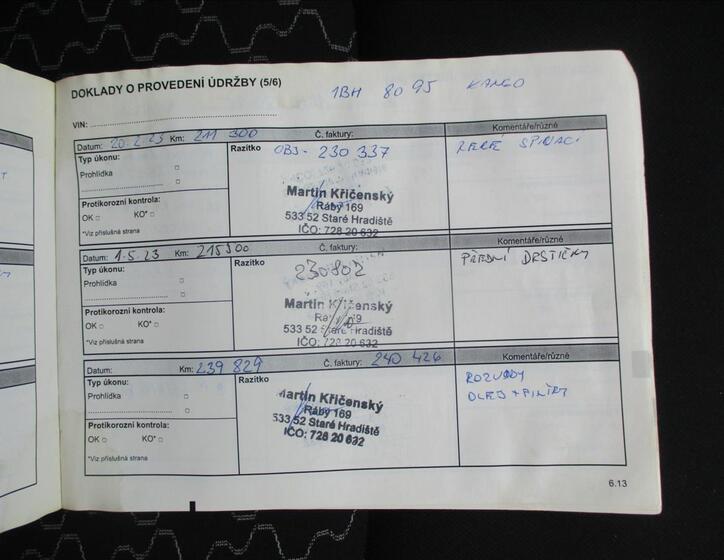 DOKLADY O PROVEDENÍ ÚDRŽBY (5/6)
1BH 8095 KANGO
VIN:
Datum: 20.2.23 Km: 211 300 Č. faktury: Komentáře/různé
Typ úkonu: Razítko OBJ- 230 337 RELÉ SPÍNACÍ
Prohlídka
Protikorozní kontrola:
OK KO*
*Viz příslušná strana
Martin Křičenský
Ráby 169
533 52 Staré Hradiště
IČO: 728 20 632
Datum: 1.5.23 Km: 215300 Č. faktury: Komentáře/různé
Typ úkonu: Razítko 230802 PŘEDNÍ DESTIČKY
Prohlídka
Protikorozní kontrola:
OK KO*
*Viz příslušná strana
Martin Křičenský
Ráby 169
533 52 Staré Hradiště
IČO: 728 20 632
Datum: Km: 239 829 Č. faktury: 240 426 Komentáře/různé
Typ úkonu: Razítko ROZVODY
Prohlídka OLEJ + FILTRY
Protikorozní kontrola:
OK KO*
*Viz příslušná strana
Martin Křičenský
Ráby 169
533 52 Staré Hradiště
IČO: 728 20 632
6.13